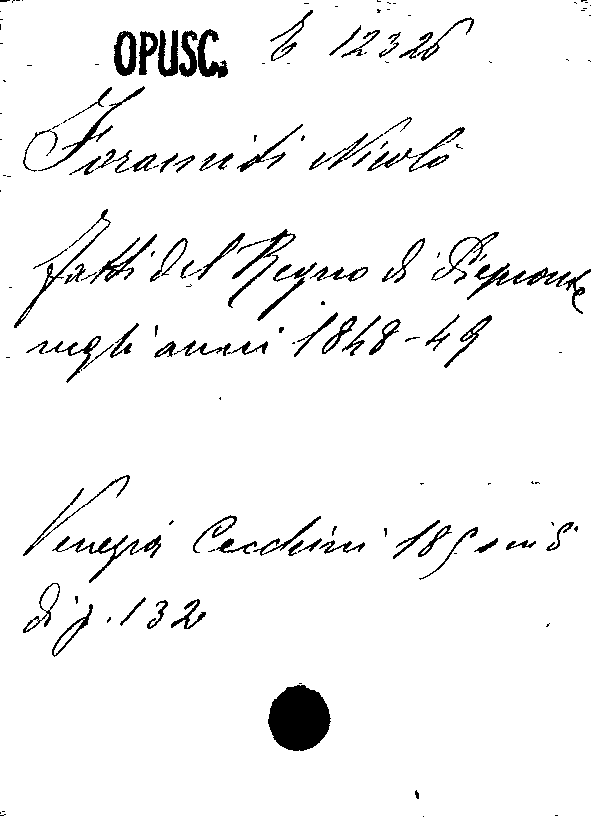 OPUSC. E 12326
Foramiti Nicolò
Fatti del Regno di Piemonte
negli anni 1848-49
Venezia Cecchini 1850 in 8°
di p. 132